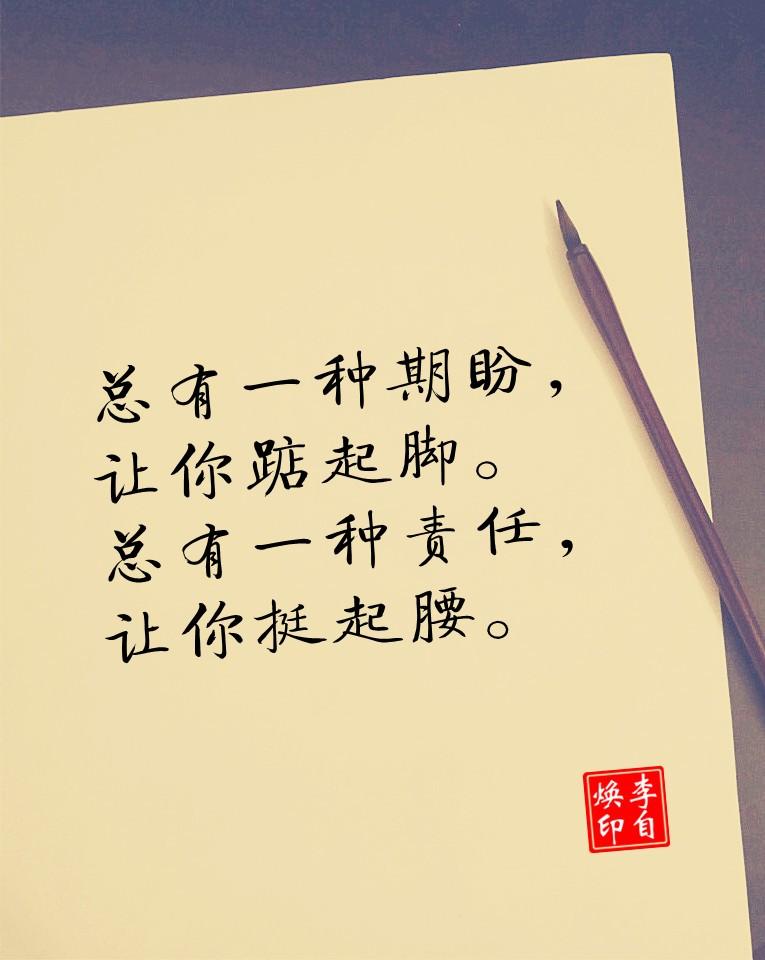 总有一种期盼，
让你踮起脚。
总有一种责任，
让你挺起腰。
李自
焕印